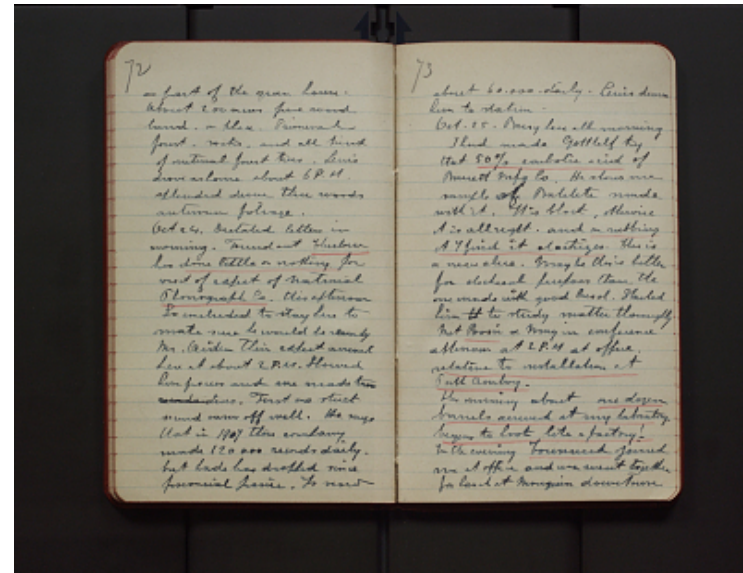 72
as part of the green house.
About 200 acres fine wood
land, in there. Primeval
forest, rocks, and all kind
of natural forest trees. Lewis
drove us home about 6 P.M.
splendid drive thru woods
autumn foliage.
Oct 24. Dictated letters in
morning. Found out Thurlow
has done little or nothing for
visit of expert of National
Phonograph Co. this afternoon
So included to stay here to
make sure he would be ready
Mr. this expert arrived
here at about 2 P.M. Showed
him press and we made two
discs. First one stuck
second came off well. He says
that in 1907 their company
made 120 000 records daily.
but trade has dropped since
financial panic. Is now
73
about 60.000 daily. Lewis drove
him to station.
Oct. 25. Busy here all morning
I had made Gottlelf try
that 50% carbolic acid of
Barrett Mfg Co. He shows me
sample of Bakelite made
with it. It is black, otherwise
it is allright. and on rubbing
it I find it electrizes. This is
a new idea. Maybe this is better
for electrical purposes than the
one made with good cresol. Started
him to study matter thoroughly
Met & May in conference
afternoon at 2 P.M at office.
relative to installation at
Perth Amboy.
This morning about one dozen
barrels arrived at my laboratory
begins to look like a factory!
In the evening Townsend joined
me at office and we went together
for lunch at downtown